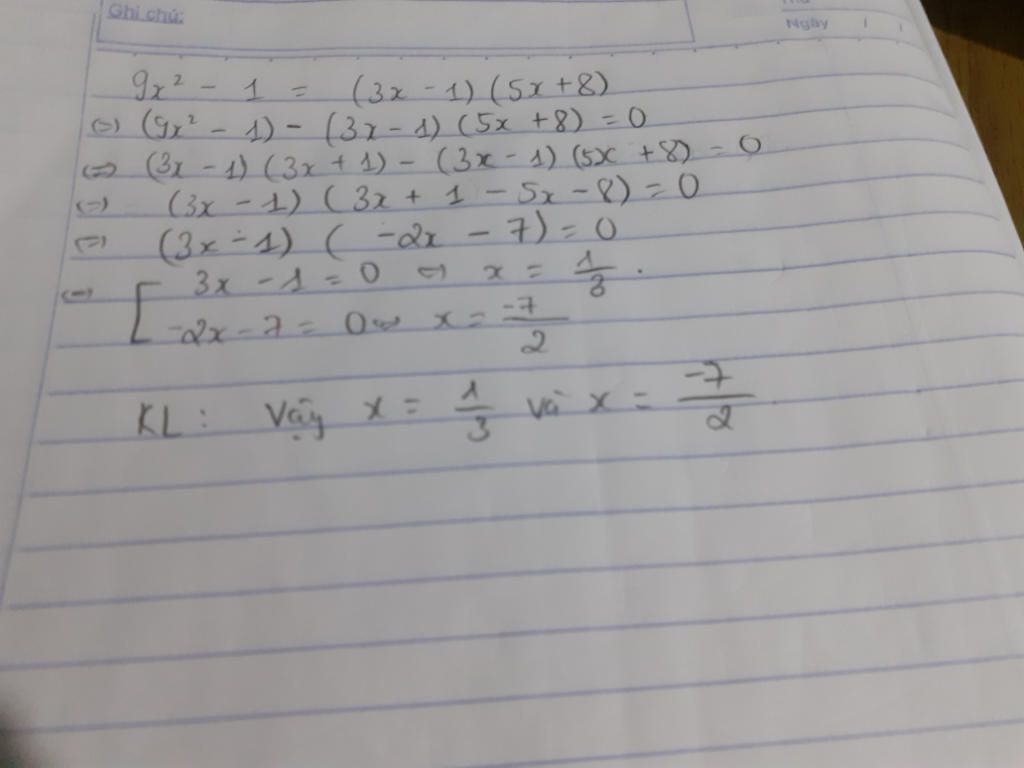 Ghi chú:
Ngày / /
9x² - 1 = (3x - 1) (5x + 8)
(=) (9x² - 1) - (3x - 1) (5x + 8) = 0
(=) (3x - 1) (3x + 1) - (3x - 1) (5x + 8) = 0
(=) (3x - 1) ( 3x + 1 - 5x - 8) = 0
(=) (3x - 1) ( -2x - 7) = 0
(=) [ 3x - 1 = 0 ⇔ x = 1/3 .
-2x - 7 = 0 ⇔ x = -7/2
KL : Vậy x = 1/3 và x = -7/2